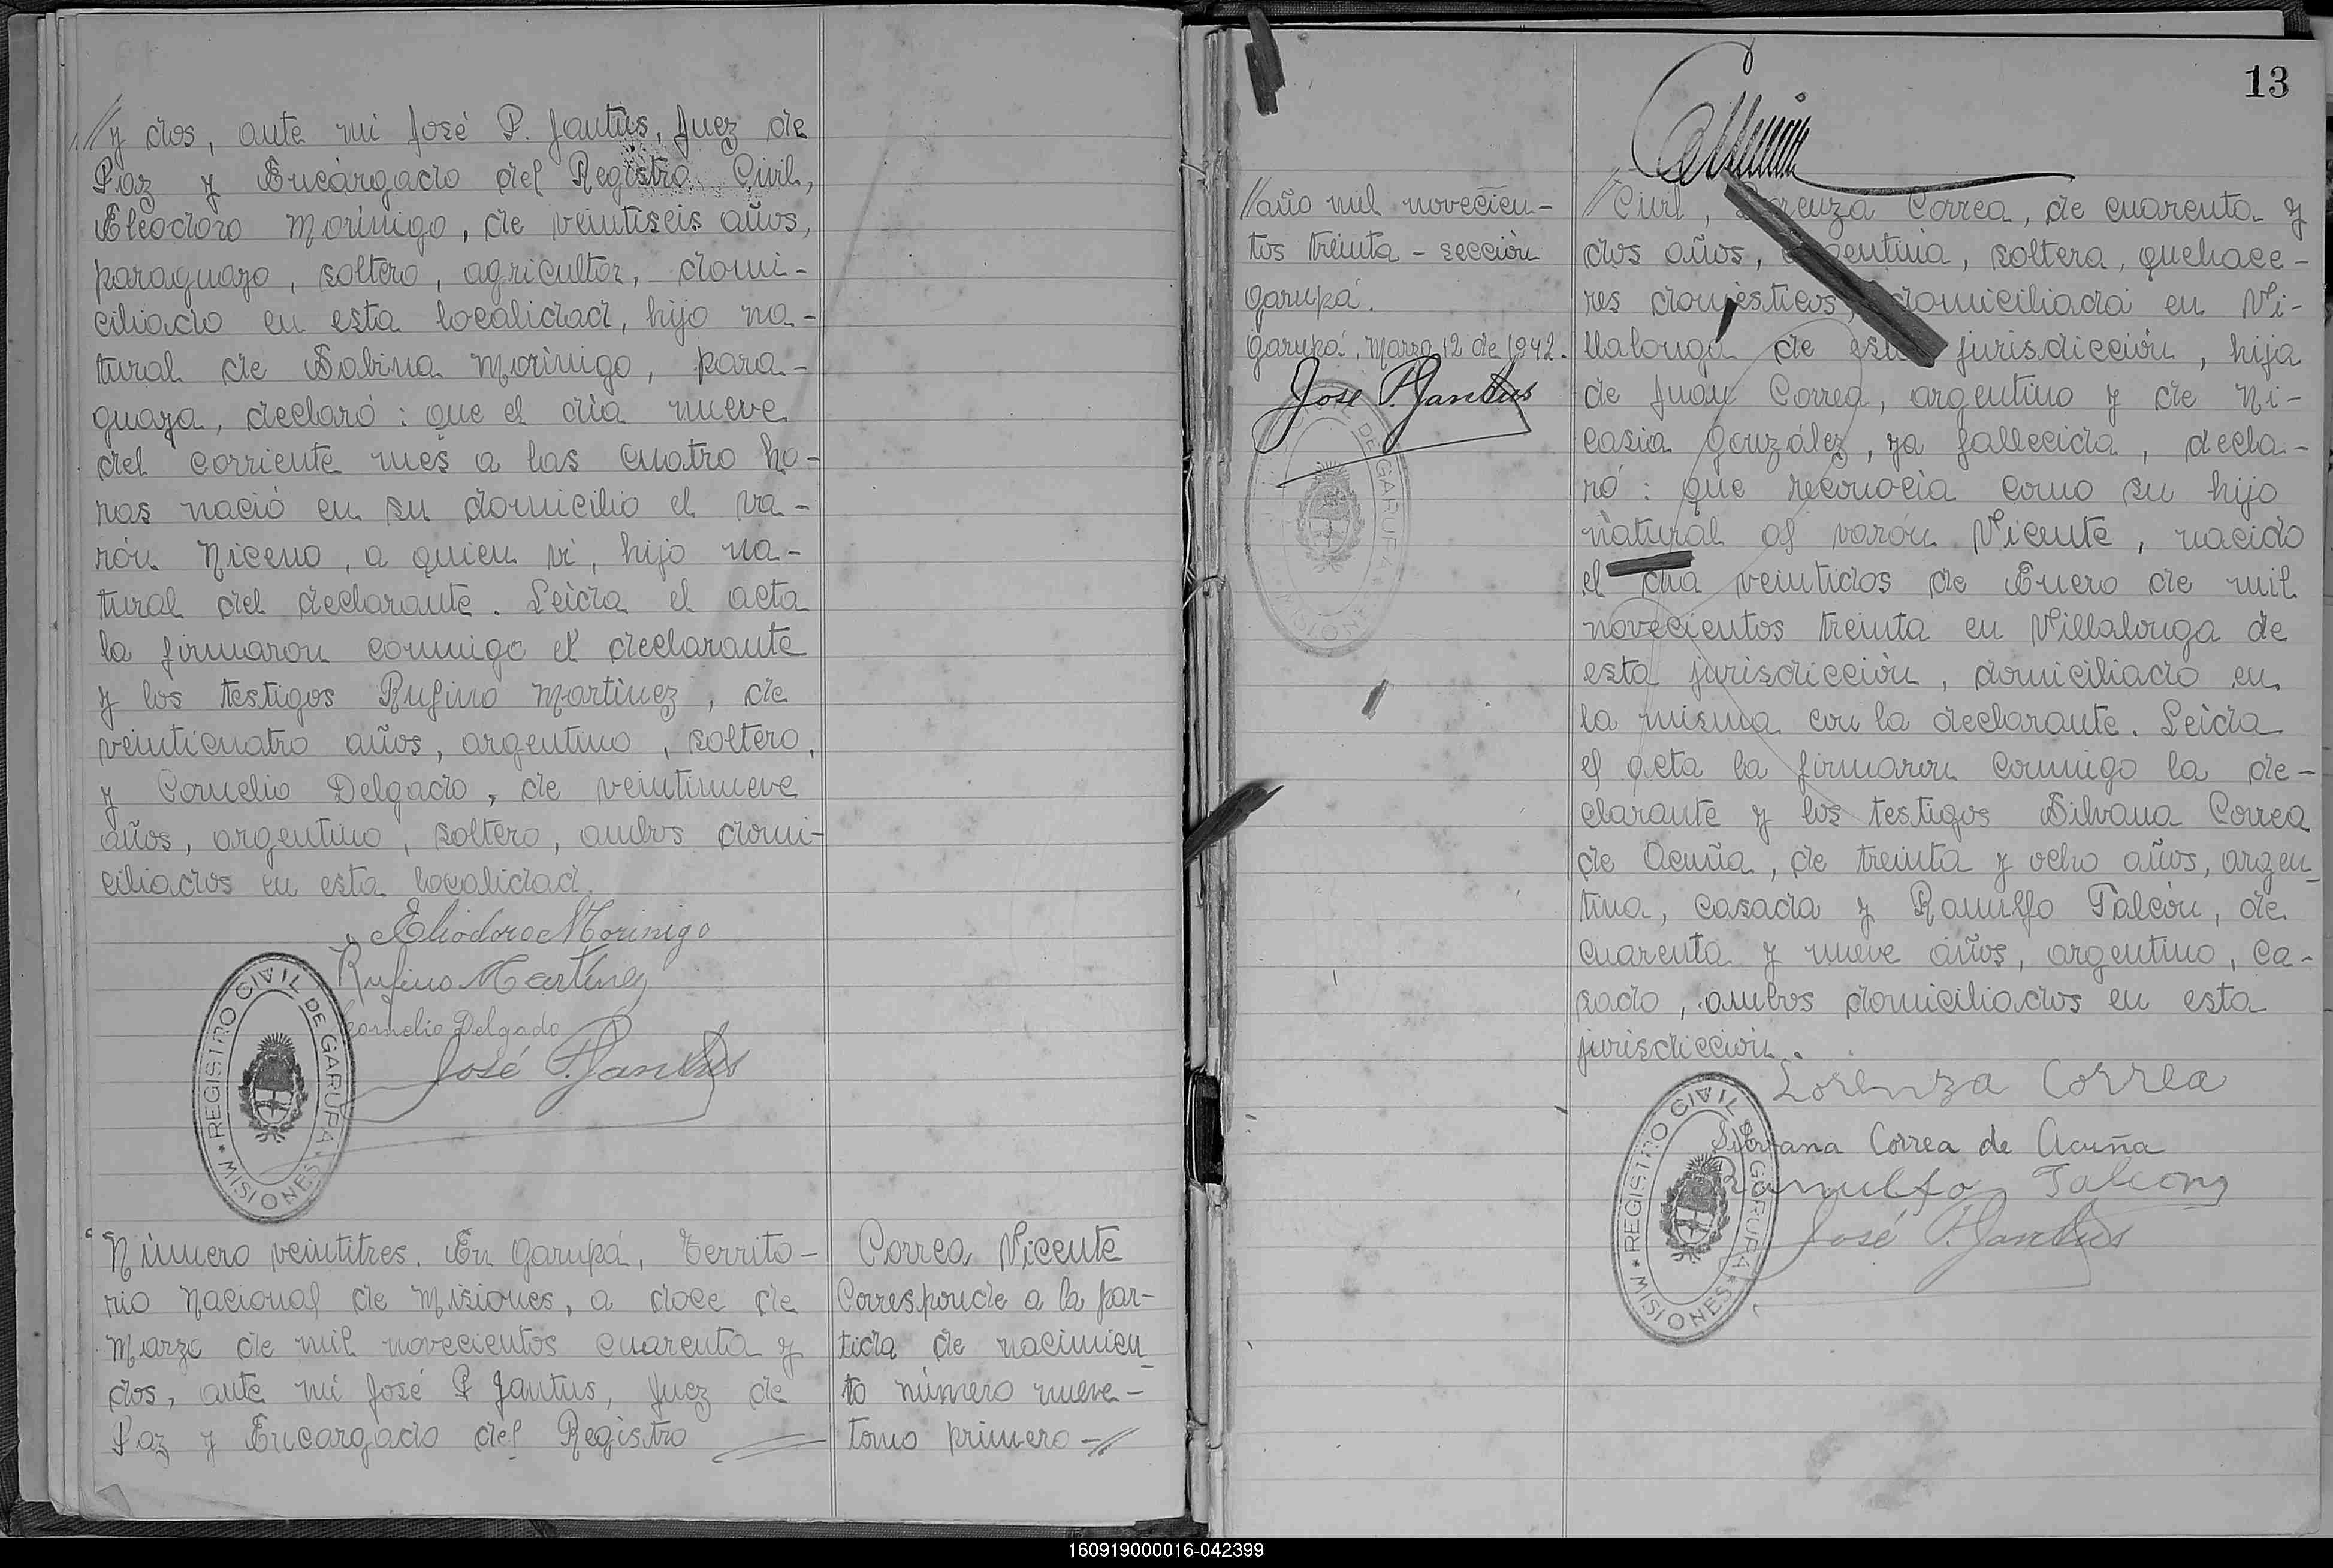 // y dos, ante mi José P. Jantus, Juez de
Paz y Encargado del Registro Civil,
Eleodoro Morínigo, de veintiseis años,
paraguayo, soltero, agricultor, domi-
ciliado en esta localidad, hijo na-
tural de Sabina Morínigo, para-
guaya, declaró: que el día nueve
del corriente mes a las cuatro ho-
ras nació en su domicilio el va-
rón Niceno, a quien vi, hijo na-
tural del declarante. Leida el acta
la firmaron conmigo el declarante
y los testigos Rufino Martínez, de
veinticuatro años, argentino, soltero,
y Cornelio Delgado, de veintinueve
años, argentino, soltero, ambos domi-
ciliados en esta localidad.
Eliodoro Morinigo
Rufino Martinez
Cornelio Delgado
José P. Jantus
REGISTRO CIVIL DE GARUPA * MISIONES *
Número veintitres. En Garupá, Territo-
rio Nacional de Misiones, a doce de
Marzo de mil novecientos cuarenta y
dos, ante mi José P Jantus, Juez de
Paz y Encargado del Registro
Correa, Vicente
Corresponde a la par-
tida de nacimien-
to número nueve-
tomo primero - //
13
// año mil novecien-
tos treinta - sección
Garupá.
Garupá, Marzo 12 de 1942.
José P. Jantus
DE GARUPA
// Civil, Lorenza Correa, de cuarenta y
dos años, argentina, soltera, quehace-
res domésticos, domiciliada en Vi-
llalonga de esta jurisdicción, hija
de Juan Correa, argentino y de Ni-
casia González, ya fallecida, decla-
ró: que reconocía como su hijo
natural al varón Vicente, nacido
el día veintidos de Enero de mil
novecientos treinta en Villalonga de
esta jurisdicción, domiciliado en
la misma con la declarante. Leída
el acta la firmaron conmigo la de-
clarante y los testigos Silvana Correa
de Acuña, de treinta y ocho años, argen-
tina, casada y Ranulfo Falcón, de
cuarenta y nueve años, argentino, ca-
sado, ambos domiciliados en esta
jurisdicción.
Lorenza Correa
Silvana Correa de Acuña
Ranulfo Falcon
José P. Jantus
REGISTRO CIVIL DE GARUPA * MISIONES *
160919000016-042399